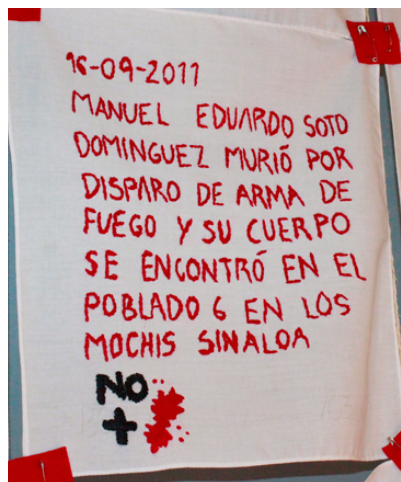 16-09-2011
MANUEL EDUARDO SOTO
DOMINGUEZ MURIÓ POR
DISPARO DE ARMA DE
FUEGO Y SU CUERPO
SE ENCONTRÓ EN EL
POBLADO 6 EN LOS
MOCHIS SINALOA
NO
+